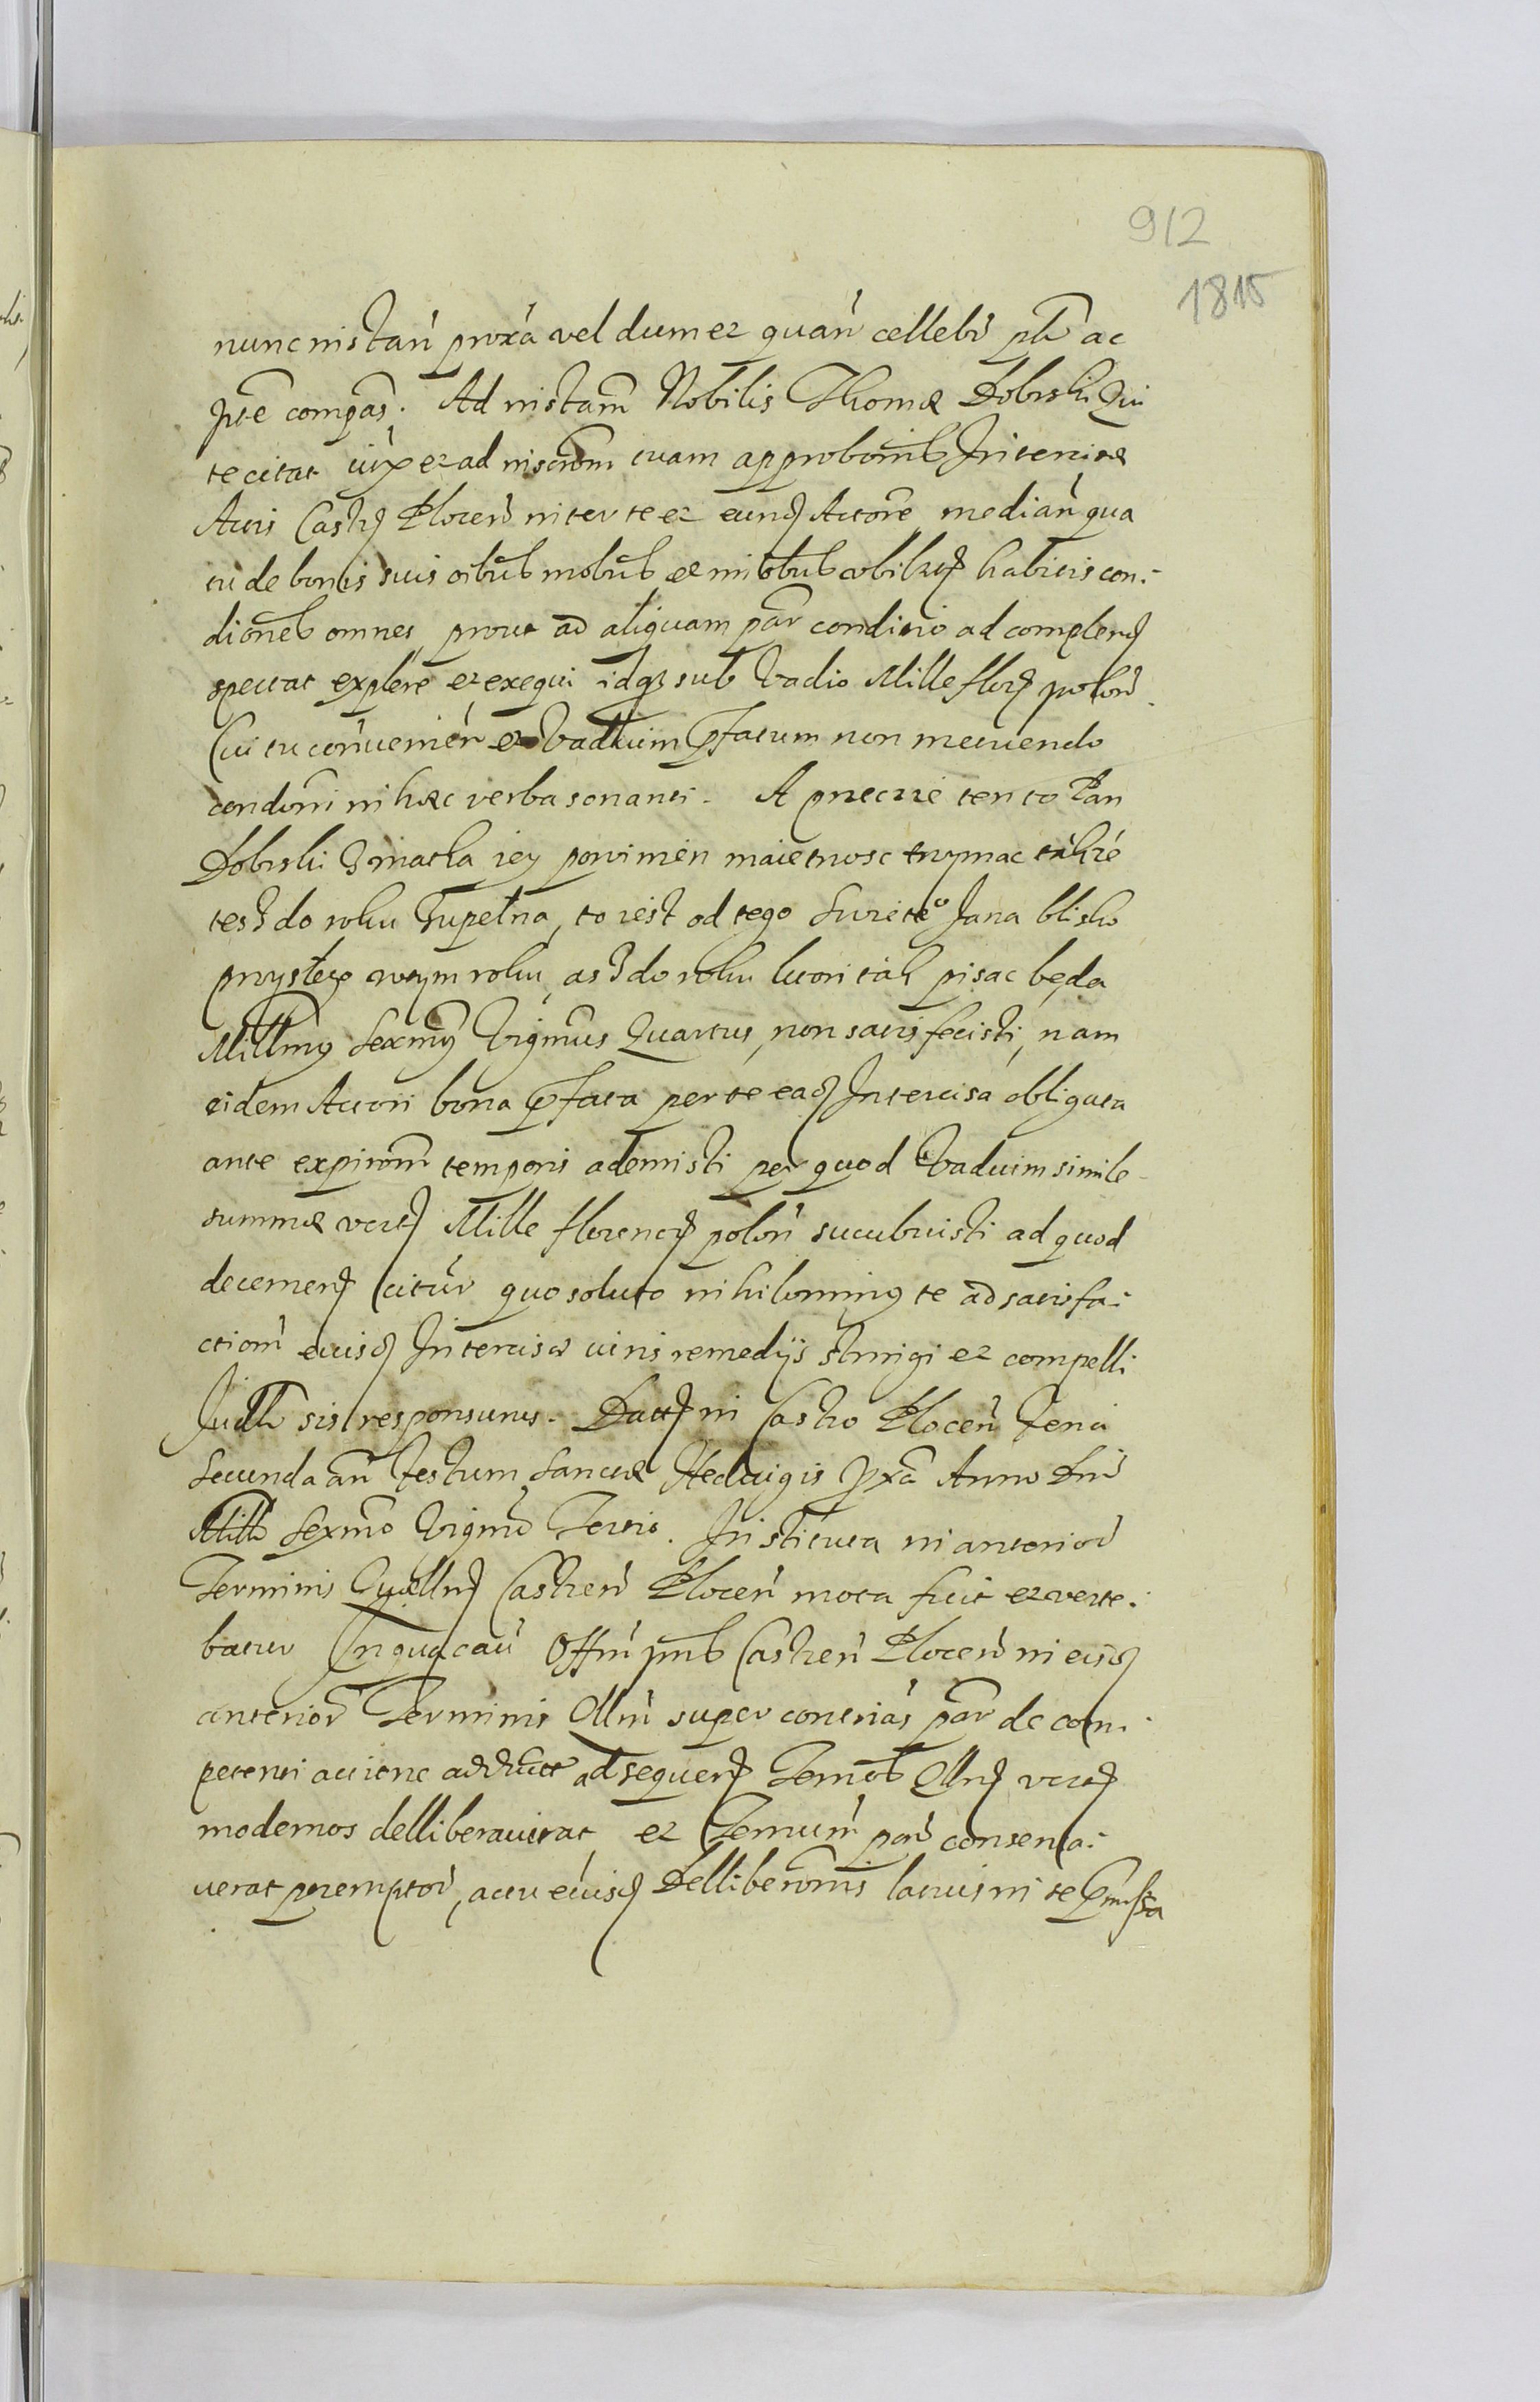 912
1815
nunc instan̄ proxā vel dum et quan̄ cellebr̄ płr ac
pte compās. Ad instam̄ Nobilis Thomæ Dobrski Qui
te citat iux et ad inscrōm tuam approbōnis Intercisæ
Actis Castr̄ Plocen̄ inter te et eund Actore median̄ qua
tu de bonis suis oibūs mobūs et imōbūs habitis con:
diōnes omnes, prout ad aliquam par̄ conditio ad complend
spectat explere et exequi idq sub Vadio Mille flor polon̄
Cui tu con̄venien̄ et Vadium pfatum non metuendo
condōni in hæc verba sonanti. A przecie ten to Pan
Dobrski Zmatka iey powinien maietnosc trzymac takze
tesz do roku Zupełna, to iest od tego Swiete° Jana blisko
przysłego wtym roku, asz do roku ktori tak pisac będa
Millmus Sexmus Vigmus Quartus, non satisfecisti, nam
eidem Actori bona pfata per te ead Intercisa obligata
ante expirōm temporis ademisti per quod Vadium simile
summæ Mille florenor polon̄ sucubuisti ad quod
decernend citūr quo soluto nihilominus te ad satisfa:
ctiōm eiusd Intercisæ iuris remedijs stringi et compelli
Judlr̄ sis responsurus. Datt in Castro Plocen̄ Feria
Secunda an̄ Festum Sanctæ Hedvigis pxā Anno Dni
Millō Sexmō Vigmō Tertio. Institura in anterior̄
Terminis Quellr Castren̄ Plocen̄ mota fuit et verte:
batur In qua cau̅ Offm̄ pns Castren̄ Plocen̄ in eisd
anterior̄ Terminis Qllr̄ super contrias par̄ de com:
petenti actione adductt ad sequend Termōs Qllr
modernos delliberavierat, et Termum̄ par̄ conserva:
uerat peremptor̄, actu eiusd Delliberōnis latius in se pmissa